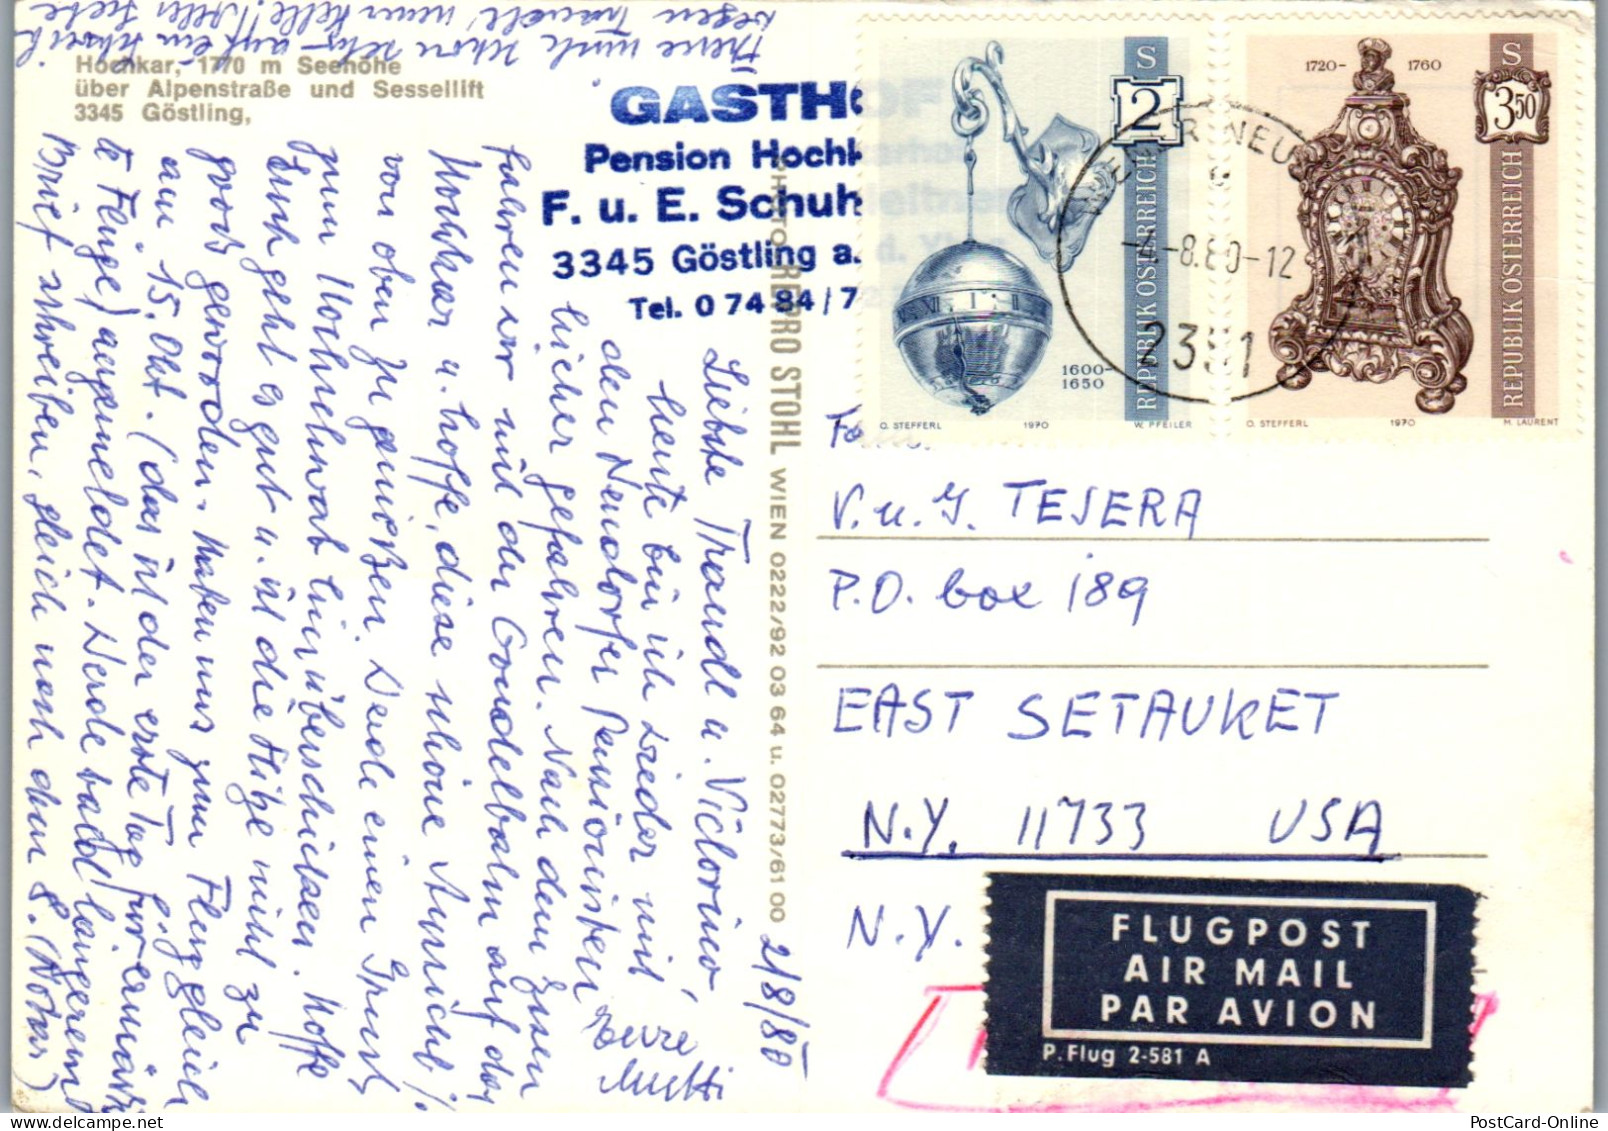 Hochkar, 1770 m Seehöhe
über Alpenstraße und Sessellift
3345 Göstling,
GASTHOF
Pension Hochk
F. u. E. Schuh
3345 Göstling a.
Tel. 0 74 84 / 7
PHOTO REPRO STOHL WIEN 0222/92 03 64 u. 02773/61 00
2/8/80
Liebste Traudl u. Victorino,
heute bin ich wieder mit
den Neudorfer Pensionisten
hieher gefahren. Nach dem Essen
fahren wir mit der Gondelbahn auf das
Hochkar u. hoffe, diese schöne Aussicht
von oben zu genießen. Sende einen Gruß
zum Hochschwab hinüberschicken. Hoffe
Euch geht es gut u. ist die Hitze nicht zu
groß geworden. Haben uns zum Flug gleich
am 15. Okt. (das ist der erste Tag für ermäßig
te Flüge) angemeldet. Werde bald längeren
Brief schreiben, gleich nach dem 8.
Eure
Mutti
Freue mich schon sehr auf ein
S 2
1600-
1650
REPUBLIK ÖSTERREICH
O. STEFFERL 1970 W. PFEILER
1720- 1760
S 3 50
REPUBLIK ÖSTERREICH
O. STEFFERL 1970 M. LAURENT
WIENER NEU
-4.-8.80-12
2351
Fam.
V. u. G. TESERA
P.O. box 189
EAST SETAUKET
N.Y. 11733 USA
N.Y.
FLUGPOST
AIR MAIL
PAR AVION
P. Flug 2-581 A